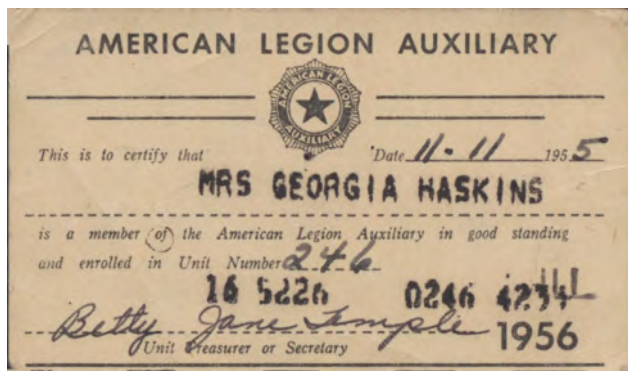 AMERICAN LEGION AUXILIARY
AMERICAN LEGION
AUXILIARY
This is to certify that Date 11-11 1955
MRS GEORGIA HASKINS
is a member of the American Legion Auxiliary in good standing
and enrolled in Unit Number 246
16 5226 0246
Betty Jane Temple 1956
Unit Treasurer or Secretary